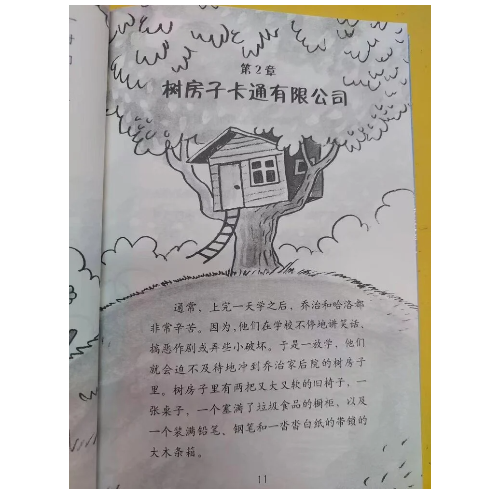 第2章
树房子卡通有限公司
通常，上完一天学之后，乔治和哈洛都
非常辛苦。因为，他们在学校不停地讲笑话，
搞恶作剧或弄些小破坏。于是一放学，他们
就会迫不及待地冲到乔治家后院的树房子
里。树房子里有两把又大又软的旧椅子，一
张桌子，一个塞满了垃圾食品的橱柜，以及
一个装满铅笔、钢笔和一沓沓白纸的带锁的
大木条箱。
11